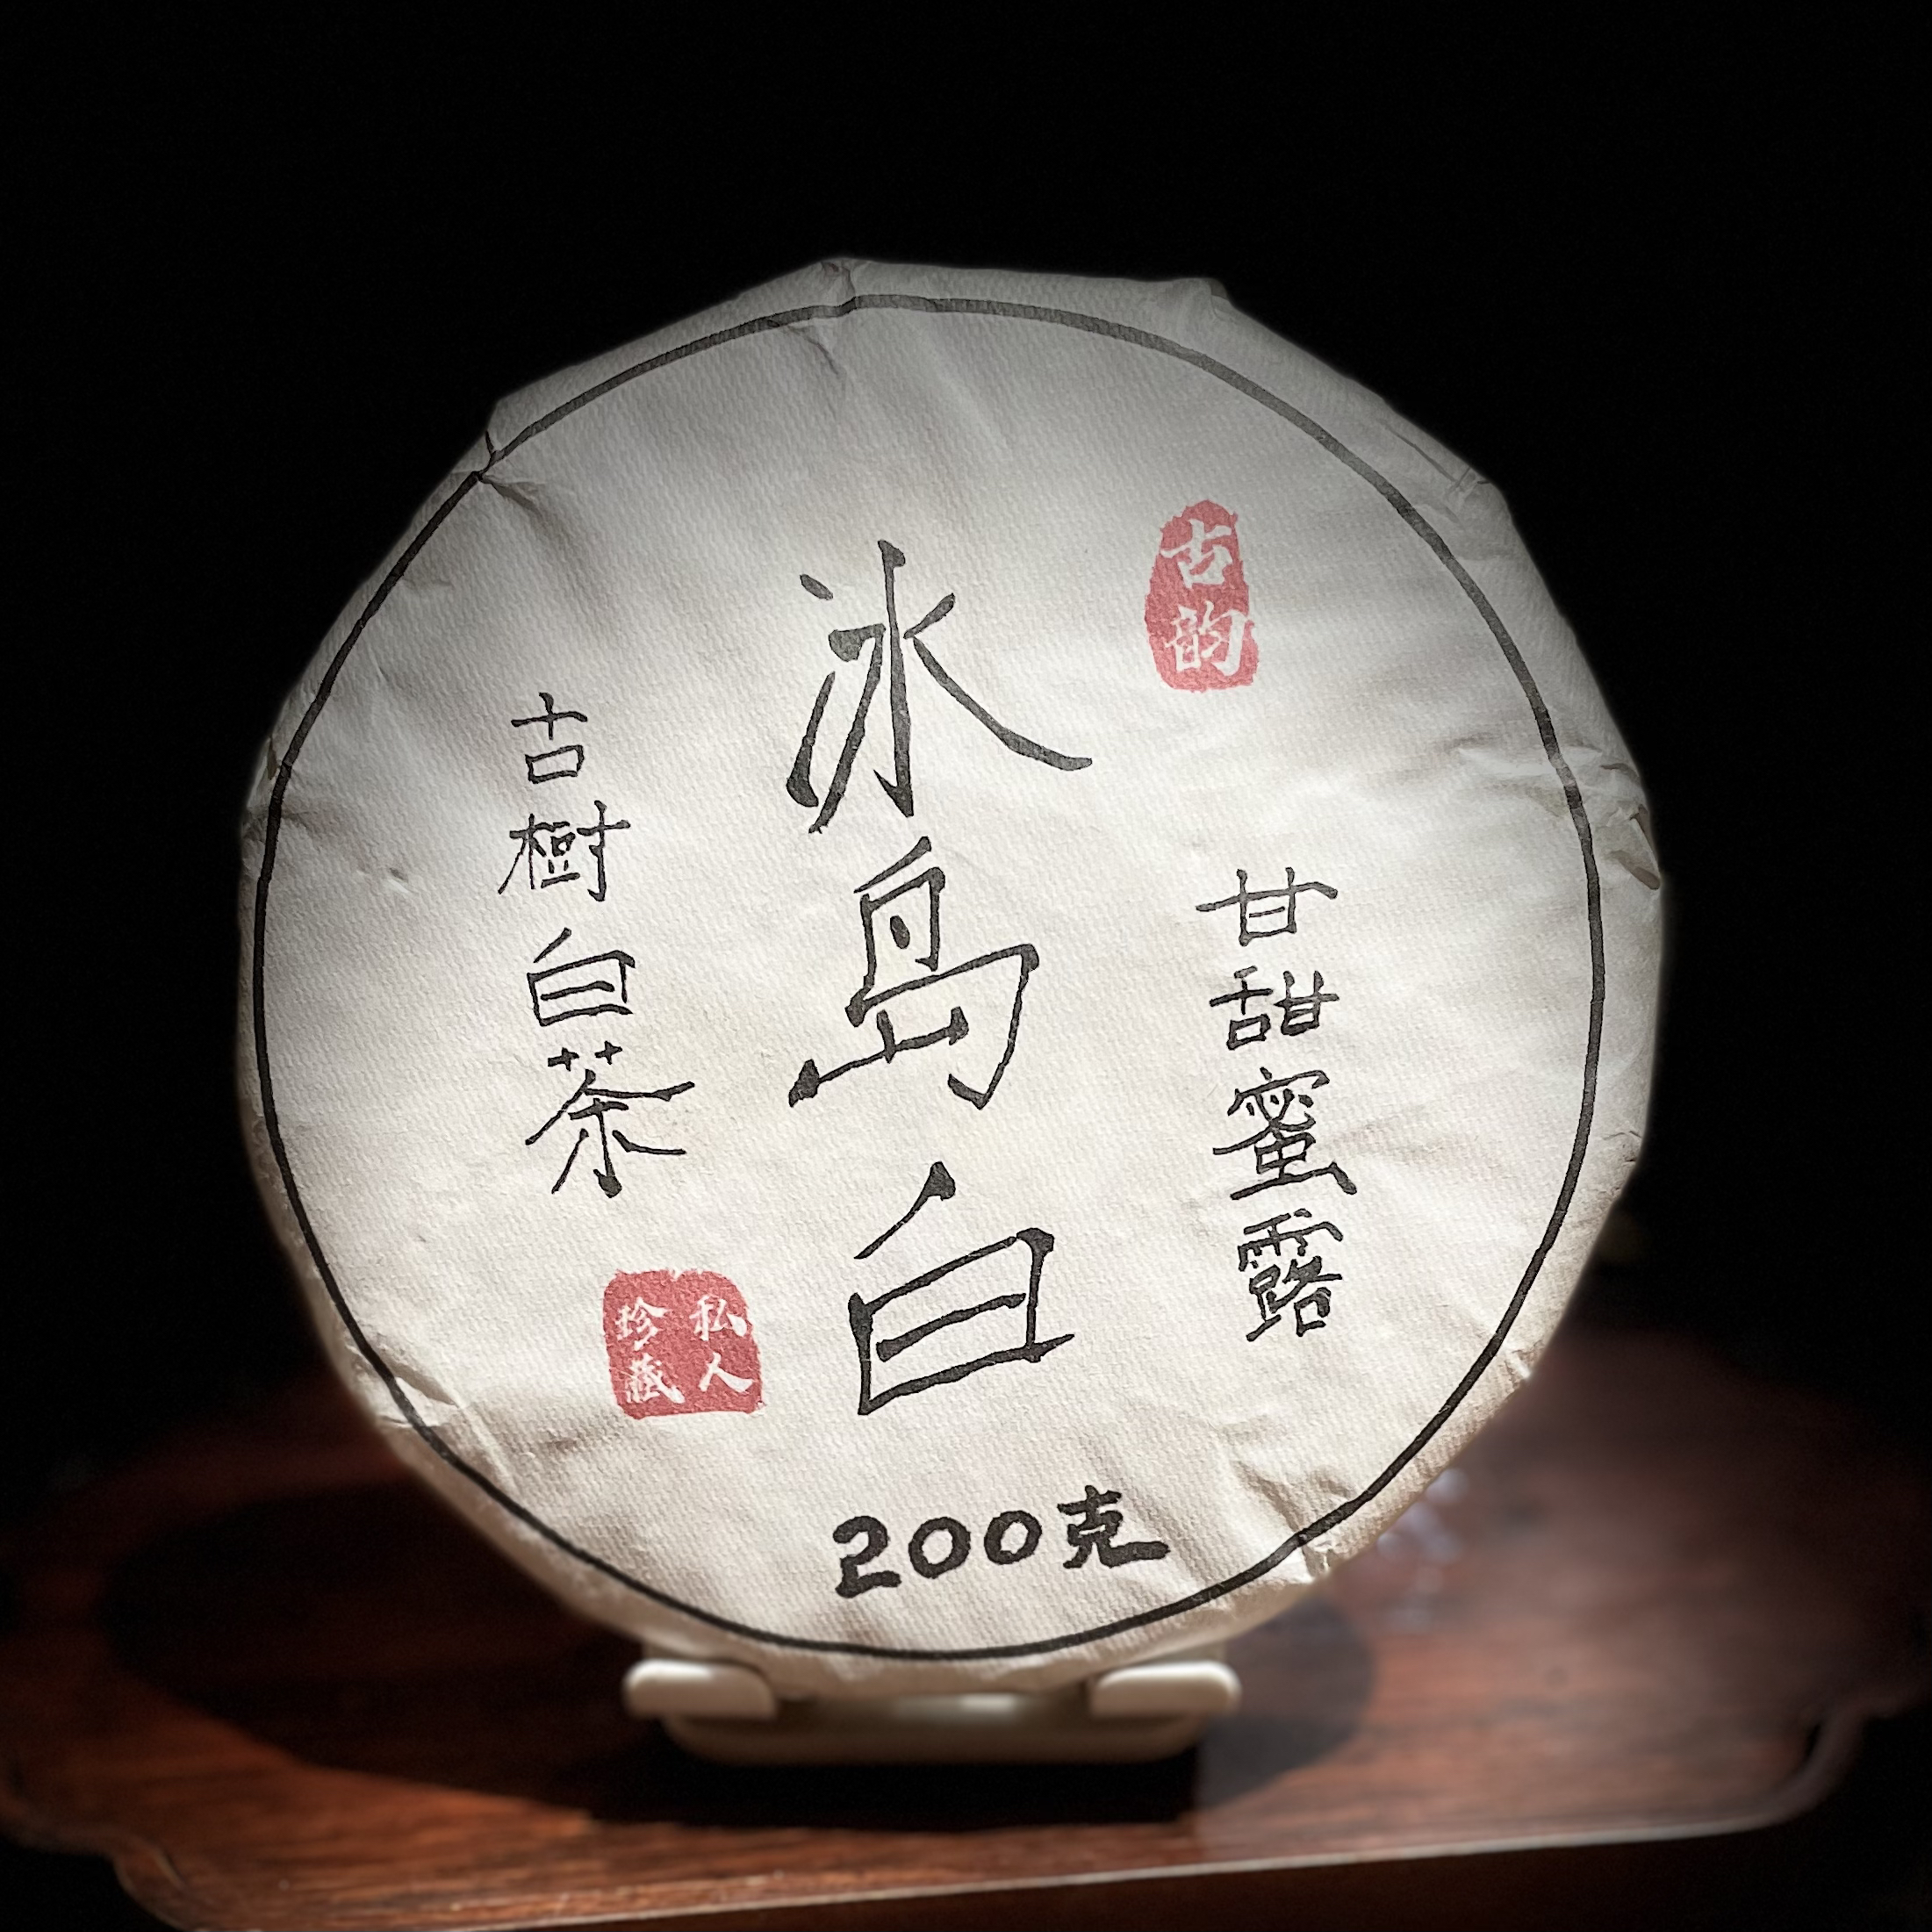 古韵
甘甜蜜露
冰岛白
古樹白茶
私人
珍藏
200克